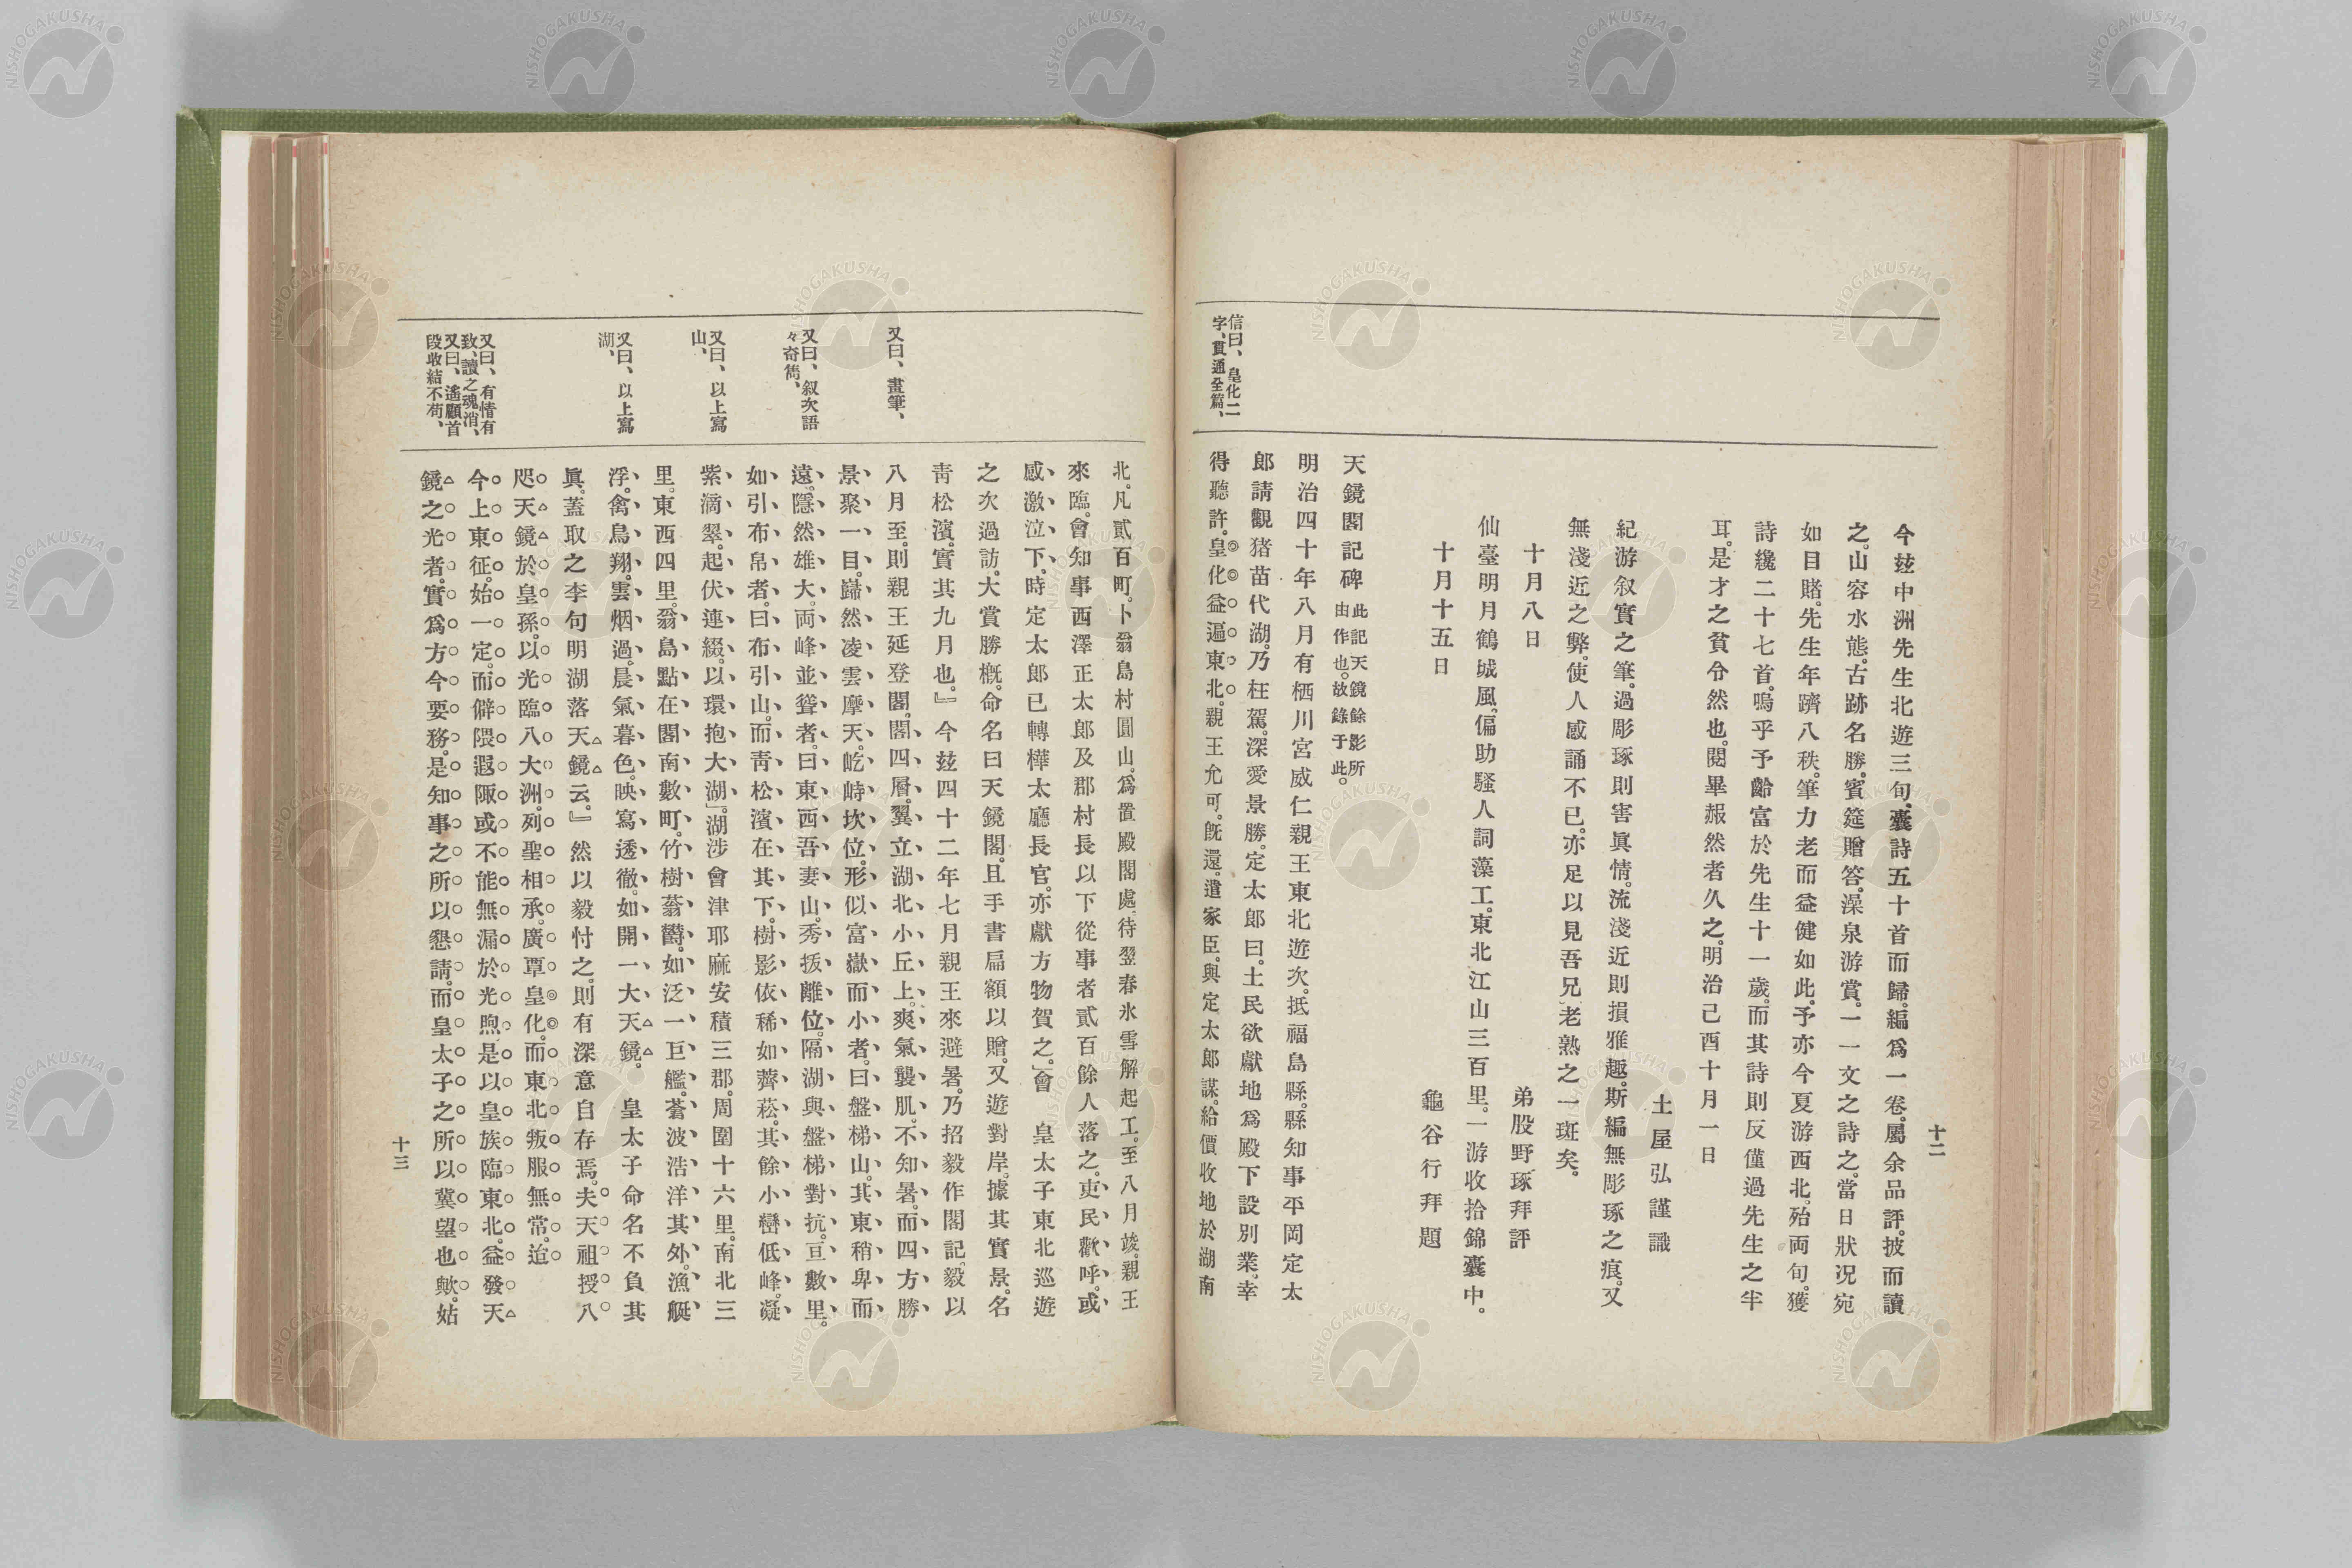 十二
今玆中洲先生北遊三旬。囊詩五十首而歸。編爲一卷。屬余品評。披而讀
之。山容水態。古跡名勝。賓筵贈答。澡泉游賞。一一文之詩之。當日狀況宛
如目睹。先生年躋八秩。筆力老而益健如此。予亦今夏游西北。殆兩旬。獲
詩纔二十七首。嗚乎予齡富於先生十一歲。而其詩則反僅過先生之半
耳。是才之貧令然也。閱畢赧然者久之。明治己酉十月一日
土屋弘謹識
紀游叙實之筆。過彫琢則害眞情。流淺近則損雅趣。斯編無彫琢之痕。又
無淺近之弊。使人感誦不已。亦足以見吾兄老熟之一斑矣。
十月八日 弟股野琢拜評
仙臺明月鶴城風。偏助騷人詞藻工。東北江山三百里。一游收拾錦囊中。
十月十五日 龜谷行拜題
天鏡閣記碑 此記天鏡餘影所由作也。故錄于此。
明治四十年八月有栖川宮威仁親王東北遊次。抵福島縣。縣知事平岡定太
郎請觀猪苗代湖。乃枉駕。深愛景勝。定太郎曰。土民欲獻地爲殿下設別業。幸
得聽許。皇化益遍東北。親王允可。旣還。遣家臣。與定太郎謀。給價收地於湖南
信曰、皇化二
字、貫通全篇、
北。凡貳百町。卜翁島村圓山。爲置殿閣處。待翌春氷雪解起工。至八月竣。親王
來臨。會知事西澤正太郎及郡村長以下從事者貳百餘人落之。吏民歡呼。或
感激泣下。時定太郎已轉樺太廳長官。亦獻方物賀之。會 皇太子東北巡遊
之次過訪。大賞勝槪。命名曰天鏡閣。且手書扁額以贈。又遊對岸。據其實景。名
靑松濱。實其九月也。』今玆四十二年七月親王來避暑。乃招毅作閣記。毅以
八月至。則親王延登閣。閣四層。翼立湖北小丘上。爽氣襲肌。不知暑。而四方勝
景聚一目。巋然凌雲摩天。屹峙坎位。形似富嶽而小者。曰盤梯山。其東稍卑而
遠。隱然雄大。兩峰並聳者。曰東西吾妻山。秀拔離位。隔湖與盤梯對抗。亘數里。
如引布帛者。曰布引山。而靑松濱在其下。樹影依稀如薺菘。其餘小巒低峰。凝
紫滴翠。起伏連綴。以環抱大湖。』湖涉會津耶麻安積三郡。周圍十六里。南北三
里。東西四里。翁島點在閣南數町。竹樹蓊欝。如泛一巨艦。蒼波浩洋其外。漁艇
浮。禽鳥翔。雲烟過。晨氣暮色。映寫透徹。如開一大天鏡。 皇太子命名不負其
眞。蓋取之李句明湖落天鏡云。』然以毅忖之。則有深意自存焉。夫天祖授八
咫天鏡於皇孫。以光臨八大洲。列聖相承。廣覃皇化。而東北叛服無常。迨
今上東征。始一定。而僻隈遐陬或不能無漏於光煦。是以皇族臨東北。益發天
鏡之光者。實爲方今要務。是知事之所以懇請。而皇太子之所以冀望也歟。姑
又曰、畫筆、
又曰、叙次語
々奇雋、
又曰、以上寫
山、
又曰、以上寫
湖、
又曰、有情有
致、讀之魂消、
又曰、遙顧首
段收結不苟、
十三